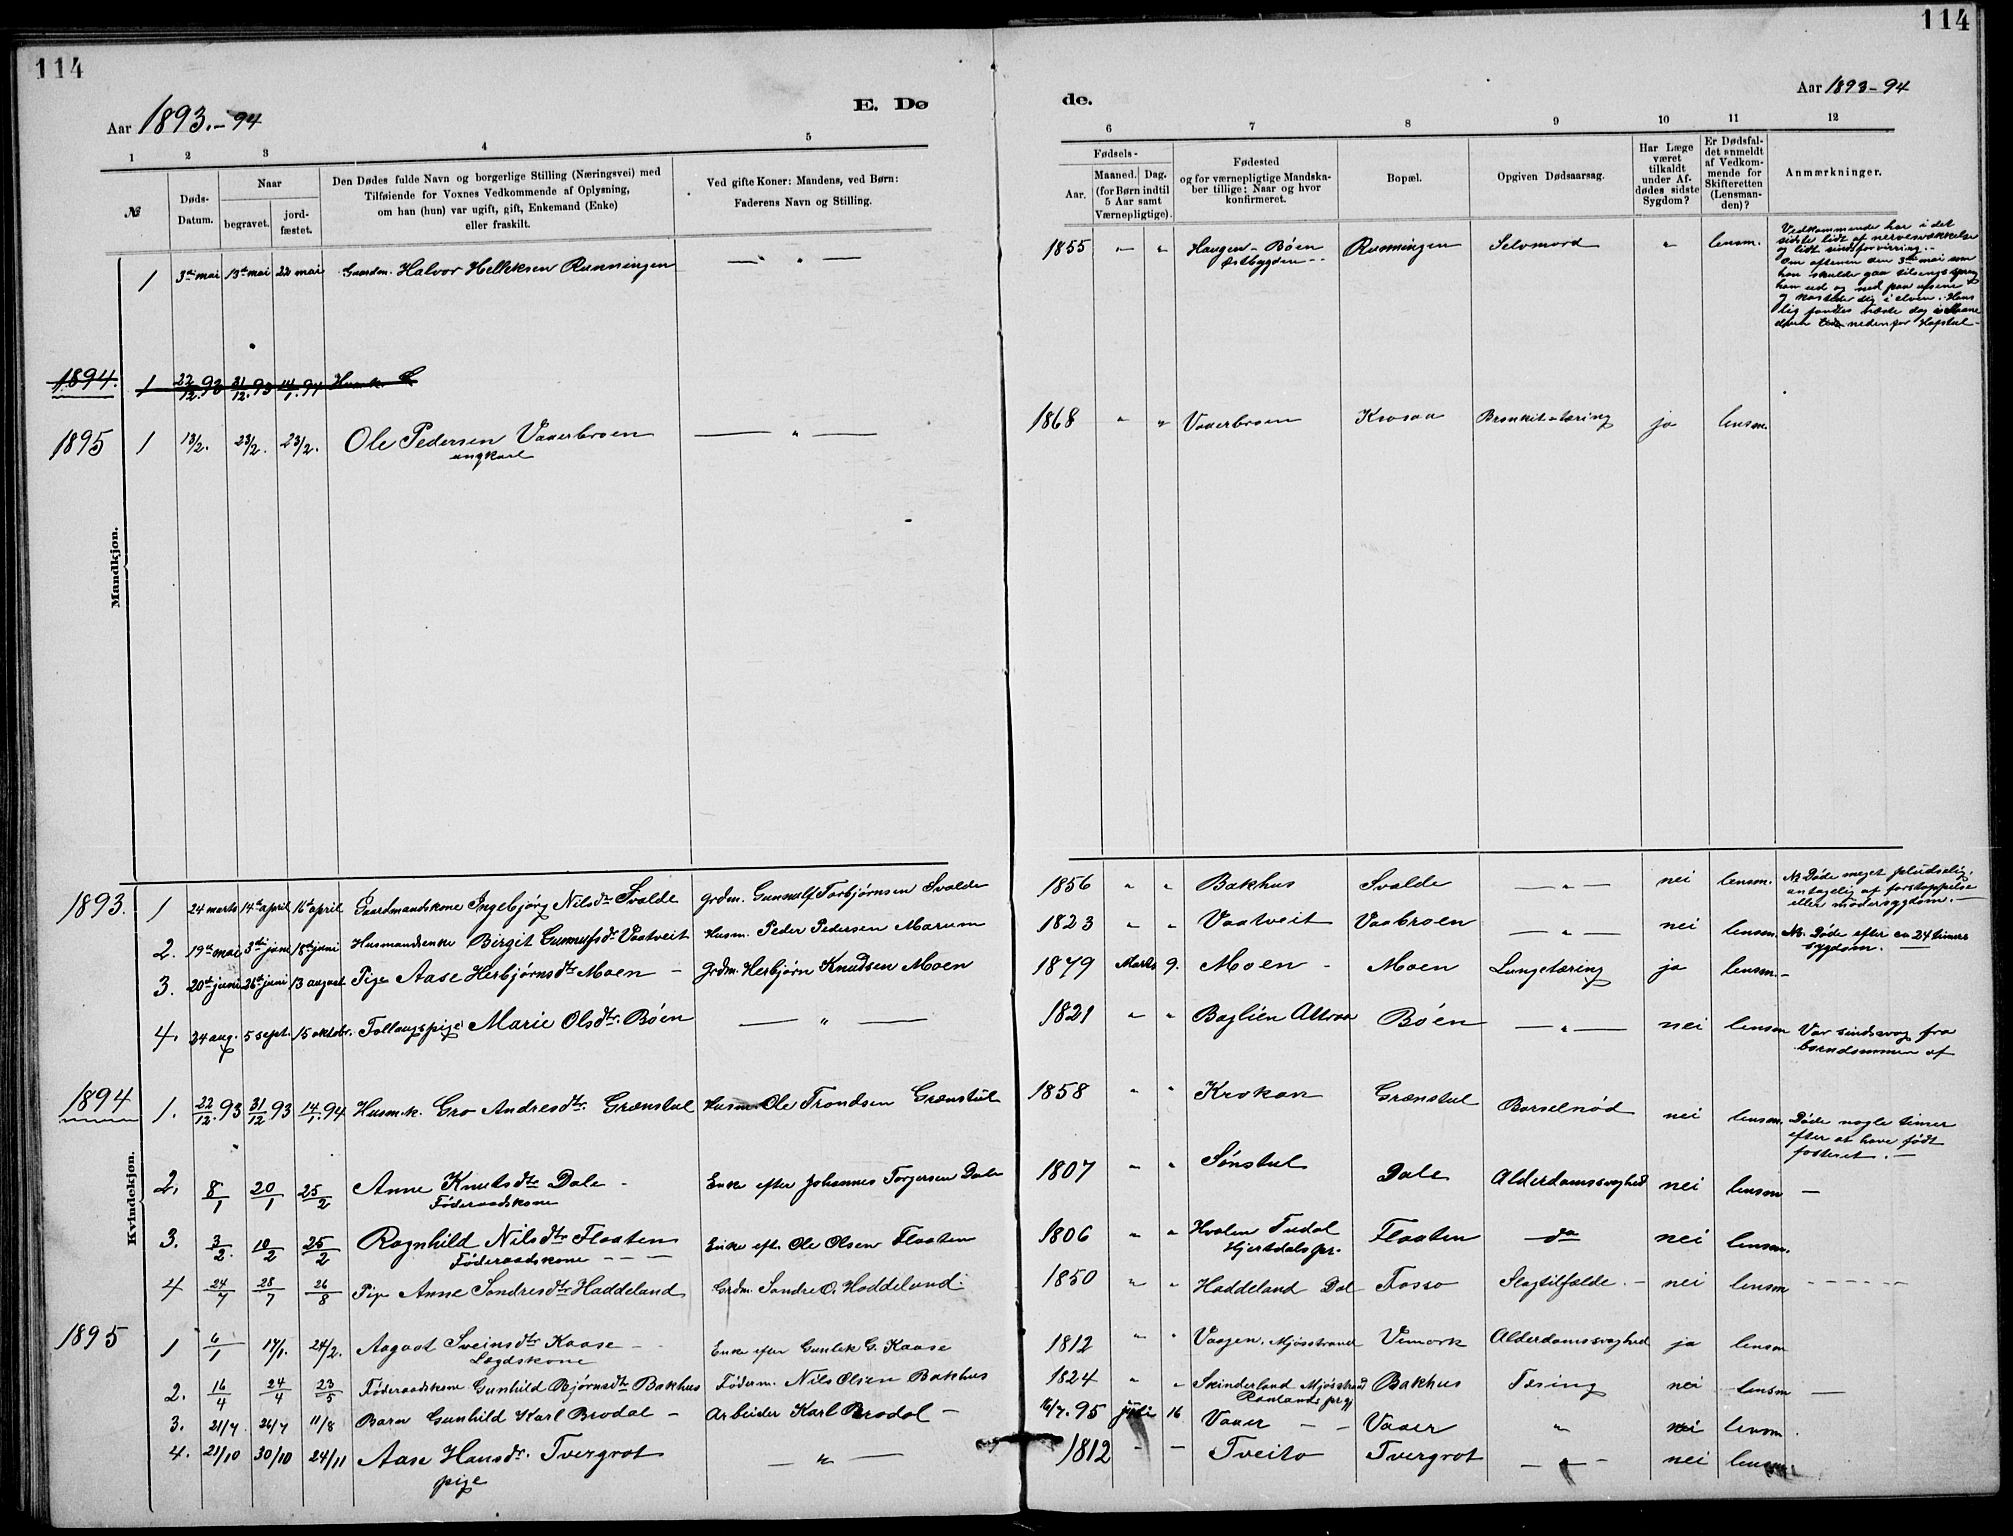 114
114
Aar 1893.-94
E. Dø
de.
Aar 1893-94
1 2 3 4 5 6 7 8 9 10 11 12
№
Døds-Datum.
Naar
begravet.
jord-fæstet.
Den Dødes fulde Navn og borgerlige Stilling (Næringsvei) med
Tilføiende for Voxnes Vedkommende af Oplysning,
om han (hun) var ugift, gift, Enkemand (Enke)
eller fraskilt.
Ved gifte Koner: Mandens, ved Børn:
Faderens Navn og Stilling.
Fødsels-
Aar.
Maaned. Dag.
(for Børn indtil
5 Aar samt
Værnepligtige).
Fødested
og for værnepligtige Mandska-
ber tillige: Naar og hvor
konfirmeret.
Bopæl.
Opgiven Dødsaarsag.
Har Læge
været
tilkaldt
under Af-
dødes sidste
Sygdom?
Er Dødsfal-
det anmeldt
af Vedkom-
mende for
Skifteretten
(Lensman-
den)?
Anmærkninger.
Mandkjøn.
1 3die mai 13de mai 22 mai Gaardm. Halvor Helleksen Runningen — " — 1855 " " Haugen - Bøen Runningen Selvmord " lensm.
Østbygden
Vedkommende har i det
sidste lidt af nervesvækkelse
og lidt sindsforvirring.-
Om aftenen den 3die mai som
han skulde gaa tilsengs sprang
han ud og ned paa
og kastede sig i elven. Hans
lig fandtes næste dag i Maane
elven nedenfor Hafstul
1894. 1 22/12.93 31/12.93 14/1.94 Husmk. G
1895 1 13/2. 23/2. 23/2. Ole Pedersen Vaaerbroen — " — 1868 " " Vaaerbroen Krosaa Bronkit-tæring ja lensm.
ungkarl
Kvindekjøn.
1893. 1 24 marts 14de april 16de april Gaardmandskone Ingebjørg Nilsdtr Svalde grdm. Gunnulf Torbjørnsen Svalde 1856 " " Bakhus Svalde — " — nei lensm. N. Døde meget pludselig,
antagelig af forstoppelse
eller modersygdom.—
2. 19de mai 3die juni 18de juni Husmandsenke Birgit Gunnulfsdr Vaatveit Husm. Peder Pedersen Marum 1823 " " Vaatveit Vaabroen — " — nei lensm. Nb. Døde efter ca 24 timers
sygdom. —
3. 20de juni 26de juni 13 august Pige Aase Herbjørnsdtr Moen - Grdm. Herbjørn Knudsen Moen 1879 Marts 9. Moen - Moen Lungetæring ja lensm.—
4. 24 aug. 5 sept. 15 oktobr. Tollaugspige Marie Olsdtr. Bøen — " — 1821 " " Baglien Attraa Bøen — " — nei lensm Var sindssvag fra
barndommen af
1894 1. 22/12.93 31/12 93 14/1.94 Husm.k. Gro Andresdtr. Grønstul Husm Ole Trondsen Grønstul 1858 " " Krokan Grønstul Barselnød nei lensm. Døde nogle timer
efter at have født
fosteret.—
2. 8/1 20/1 25/2 Anne Knutsdtr Dale - Enke efter Johannes Torjersen Dale 1807 " " Sønstul Dale Alderdomssvaghed nei lensm —
Føderaadskone
3. 3/2. 10/2 25/2 Ragnhild Nilsdtr Flaaten Enke eft. Ole Olsen Flaaten 1806 " " Hvalen Tudal Flaaten do nei lensm.
Føderaadskone — — Hjertdals pr.
4 24/7 28/7 26/8 Pige Anne Sondresdtr Haddeland Grdm. Sondre O. Haddeland. 1850 " " Haddeland Dal Fosso Slagtilfælde.— nei lensm - - - - -
1895 1 6/1 17/1. 24/2. Aagaat Sveinsdtr Kaase — Enke efter Gunlek G. Kaase 1812 " " Vaagen, Mjøsstrand Vemork Alderdomssvaghed ja lensm
Lægdskone
2. 16/4 24/4 23/5 Føderaadskone Gunhild Bjørnsdtr Bakhus Føderm. Nils Olsen Bakhus 1824 " " Skinderland Mjøsstrand Bakhus Tæring nei lensm —
Raulands prgj
3. 21/7 26/7 11/8 Barn Gunhild Karl Brodal — Arbeider Karl Brodal — 16/7.95 juli 16 Vaaer — — Vaaer " nei lensm.
4. 21/10 30/10 24/11 Aase Hansdr. Tvergrot — " — 1812 - - Tveito Tvergrot — " — nei lensm
pige